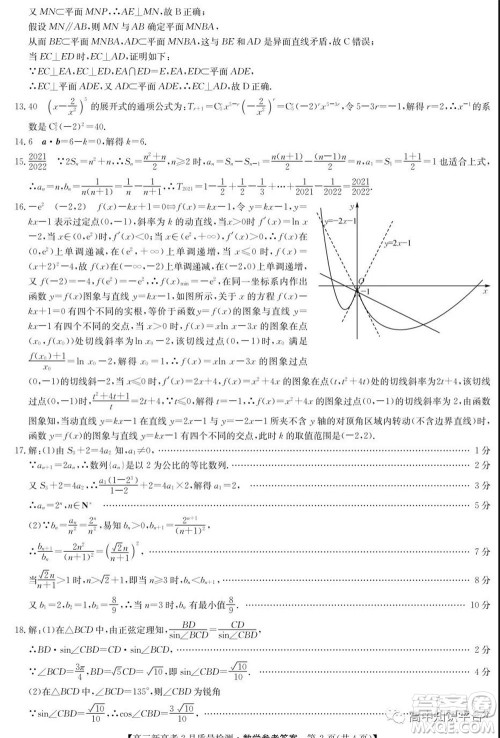 又 MN⊂平面 MNP,∴AE⊥MN,故 B 正确;
假设 MN∥AB,则 MN 与 AB 确定平面 MNBA,
从而 BE⊂平面 MNBA,AC⊂平面 MNBA,这与 BE 和 AD 是异面直线矛盾,故 C 错误;
当 EC⊥ED 时,EC⊥AD,证明如下:
∵EC⊥EA,EC⊥ED,EA∩ED=E,∴EC⊥平面 ADE,
∴EC⊥平面 ADE,又 AD⊂平面 ADE,∴EC⊥AD,故 D 正确.
13.40 (x-2/x²)⁵ 的展开式的通项公式为:Tᵣ₊₁=C₅ʳx⁵⁻ʳ(-2/x²)ʳ=C₅ʳ(-2)ʳx⁵⁻³ʳ,令 5-3r=-1,解得 r=2,∴x⁻¹的系
数是 C₅²(-2)²=40.
14.6 a·b=6-k=0,解得 k=6.
15.2021/2022 ∵2Sₙ=n²+n,∴Sₙ=(n²+n)/2,n≥2时,aₙ=Sₙ-Sₙ₋₁=n(n+1)/2-n(n-1)/2=n;当n=1也适合上式,
∴aₙ=n,bₙ=1/(n(n+1))=1/n-1/(n+1),∴T₂₀₂₁=1-1/2+1/2-1/3+…+1/2021-1/2022=2021/2022.
16.-e² (-2,2) f(x)-kx+1=0⇔f(x)=kx-1,令 y=kx-1,y=
kx-1 表示过定点(0,-1),斜率为 k 的动直线,当 x>0 时 f′(x)=ln x
-2,当 x∈(0,e²)时,f′(x)<0,当 x∈(e²,+∞),f′(x)>0,∴f(x)在
(0,e²)上单调递减,在(e²,+∞)上单调递增,当 x≤0 时,f(x)=
(x+2)²-4,故 f(x)在(-∞,-2)上单调递减,在(-2,0)上单调递增,
又 f(-2)=-4,f(e²)=-e²,∴f(x)min=-e²,在同一坐标系内作出
函数 y=f(x)图象与直线 y=kx-1,如图所示,关于 x 的方程 f(x)-
kx+1=0 有四个不同的实根,等价于函数 y=f(x)的图象与直线 y=
kx-1 有四个不同的交点,当 x>0 时,f′(x)=ln x-2,∴f(x)图象在点
(x₀,f(x₀))处切线斜率为 ln x₀-2,该切线过点(0,-1)时,x₀满足
(f(x₀)+1)/x₀=ln x₀-2,解得 x₀=1,∴f(x)图象过点
(0,-1)的切线斜率-2,当 x≤0 时,f(x)=x²+4x,f′(x)=2x+4,f(x)=x²+4x 的图象在点(t,t²+4t)处的切线斜率为 2t+4,该切线过
点(0,-1)时,(t²+4t+1)/t=2t+4,∵t≤0,解得 t=-1,∴f(x)=x²+4x 的图象过点(0,-1)的切线斜率为 2,由函数
图象知,当动直线 y=kx-1 在直线 y=-2x-1 与 y=2x-1 所夹不含 y 轴的对顶角区域内转动(不含边界直线)时,
函数 y=f(x)图象与直线 y=kx-1 有四个不同的交点,此时 k 的取值范围是(-2,2).
y=-2x-1
y
y=2x-1
O
-1
x
17.解:(1)由 S₃+2=4a₂ 知,a₁≠0, 1 分
∵aₙ₊₁=2aₙ,∴数列{aₙ}是以 2 为公比的等比数列.
又 S₃+2=4a₂,∴a₁(1-2³)/(1-2)+2=4a₁×2,解得 a₁=2, 3 分
∴aₙ=2ⁿ,n∈N* 5 分
(2)∵bₙ=aₙ/n²=2ⁿ/n²,易知 bₙ>0,bₙ₊₁=2ⁿ⁺¹/(n+1)²,
∴bₙ₊₁/bₙ=2n²/(n+1)²=(√2n/(n+1))² 7 分
当√2n/(n+1)>1 时,bₙ₊₁>bₙ,即当 n≥3 时,bₙ<bₙ₊₁, 8 分
又 b₁=2,b₂=1,b₃=8/9,∴当 n=3 时,bₙ有最小值8/9. 10 分
18.解:(1)在△BCD 中,由正弦定理知,BD/sin∠BCD=CD/sin∠CBD,
∴BD·sin∠CBD=CD·sin∠BCD. 2 分
∵∠BCD=3π/4,BD=√5CD=√10,即 sin∠CBD=√10/10. 4 分
(2)在△BCD 中,∠BCD=135°,则∠CBD 为锐角
∵sin∠CBD=√10/10,∴cos∠CBD=3√10/10. 6 分